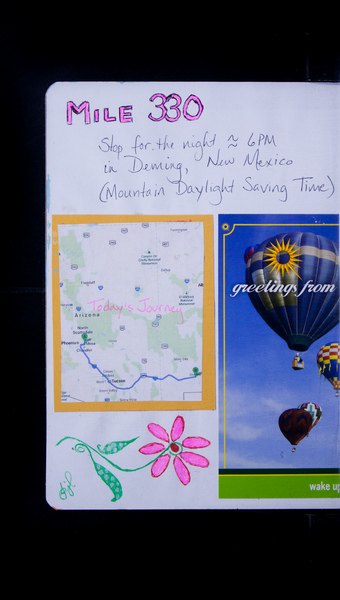 MILE 330
Stop for the night ≈ 6PM
in Deming, New Mexico
(Mountain Daylight Saving Time)
Today's Journey
Flagstaff
Arizona
North
Scottsdale
Phoenix
Mesa
Chandler
Tucson
greetings from
wake up